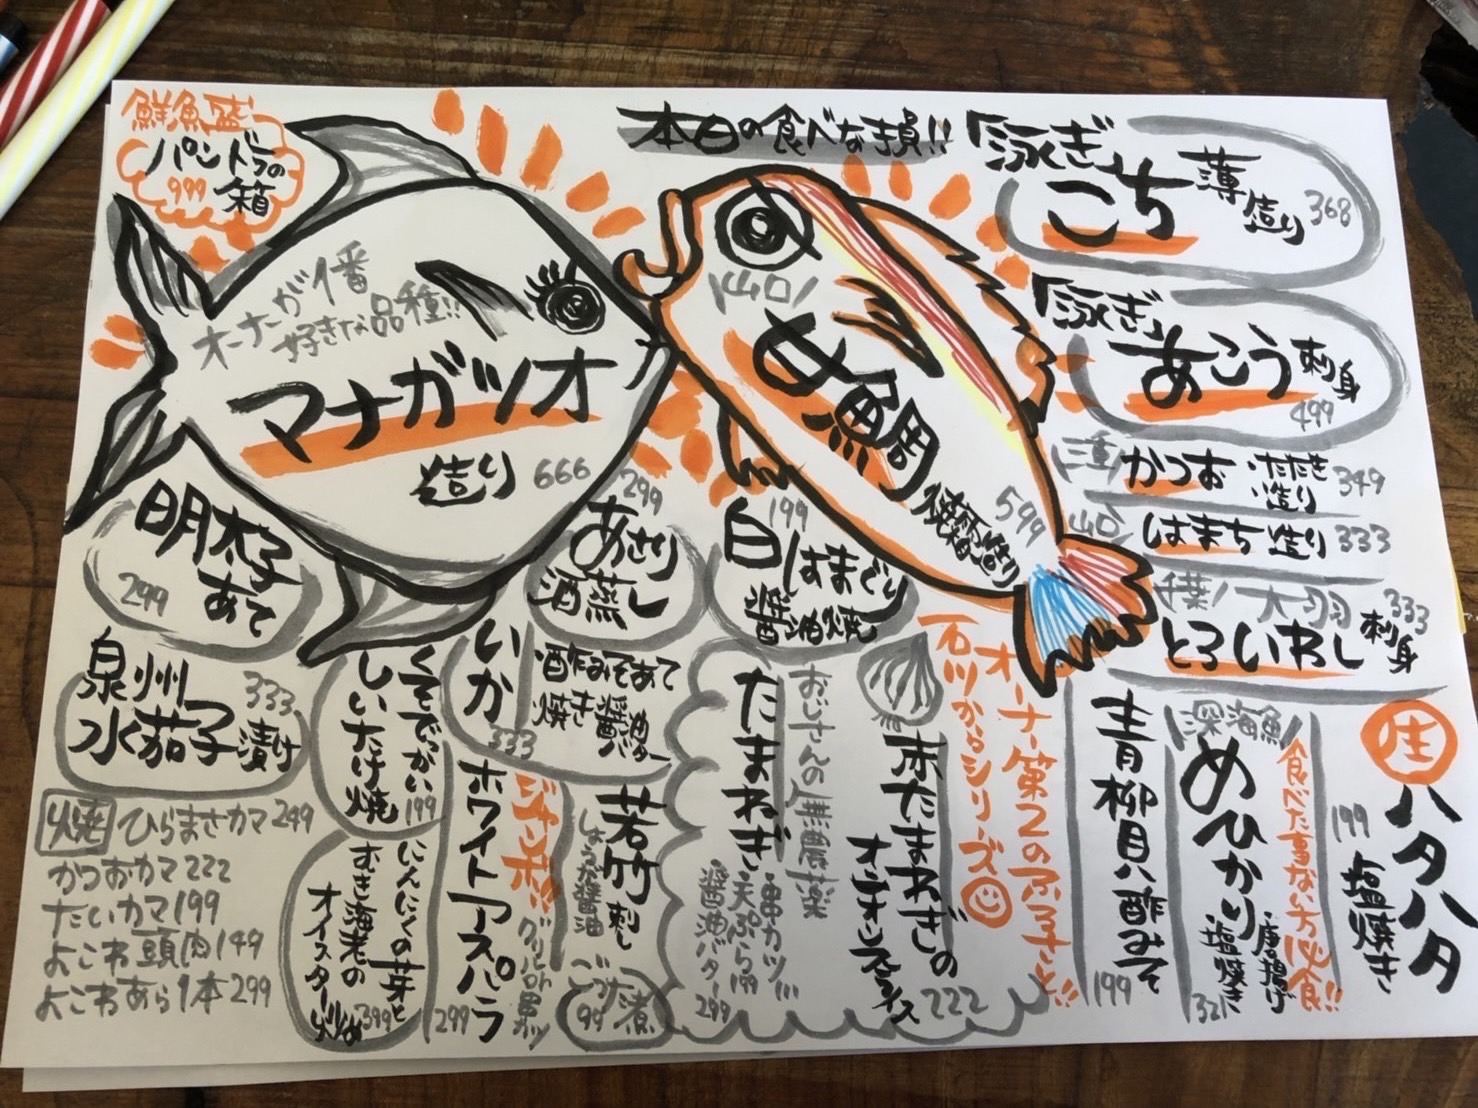 本日の食べな損!!
鮮魚盛
パンドラの
999 箱
オーナーが1番
好きな品種!!
マナガツオ
造り 666
山口
甘鯛
焼霜造り
599
「泳ぎ」
こち
薄造り
368
「泳ぎ」
あこう
刺身
499
三重
かつお
たたき
造り
349
山口
はまち造り 333
千葉 大羽
とろいわし
333
刺身
明太子
あて
299
299
あさり
酒蒸し
199
白はまぐり
醤油焼
泉州
水茄子漬け
333
くそでっかい
しいたけ焼
199
いか
酢みそあて
333
焼 ひらまさカマ 249
かつおカマ 222
たいカマ 199
よこわ頭肉 149
よこわあら1本 299
にんにくの芽と
むき海老の
オイスター炒め
399
ジャンボ!!
ホワイトアスパラ
グリルor串カツ
299
若竹
刺し
しょうが醤油
99
オーナー第2の
石川からシリーズ
赤たまねぎの
オニオンスライス
222
おじさんの無農薬
たまねぎ
串カツ
天ぷら 199
醤油バター
299
青柳貝八酢みそ
199
食べた事ない方必食!!
深海魚
めひかり
唐揚げ
塩焼き
321
生
ハタハタ
塩焼き
199